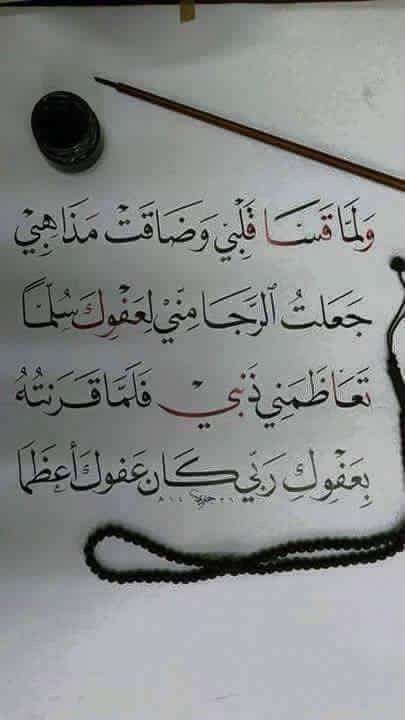 وَلَمَّا قَسَا قَلْبِيْ وَضَاقَتْ مَذَاهِبِيْ
جَعَلتُ الرَّجَا مِنِّيْ لِعَفْوِكَ سُلَّمَاً
تَعَاظَمَنِي ذَنبِيْ فَلَمَّا قَرَنتُهُ
بِعَفْوِكِ رَبِّي كَان عَفوكَ أعظَمَا